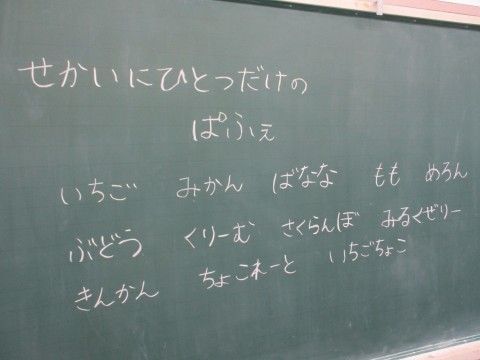 せかいにひとつだけの
ぱふぇ
いちご みかん ばなな もも めろん
ぶどう くりーむ さくらんぼ みるくぜりー
きんかん ちょこれーと いちごちょこ